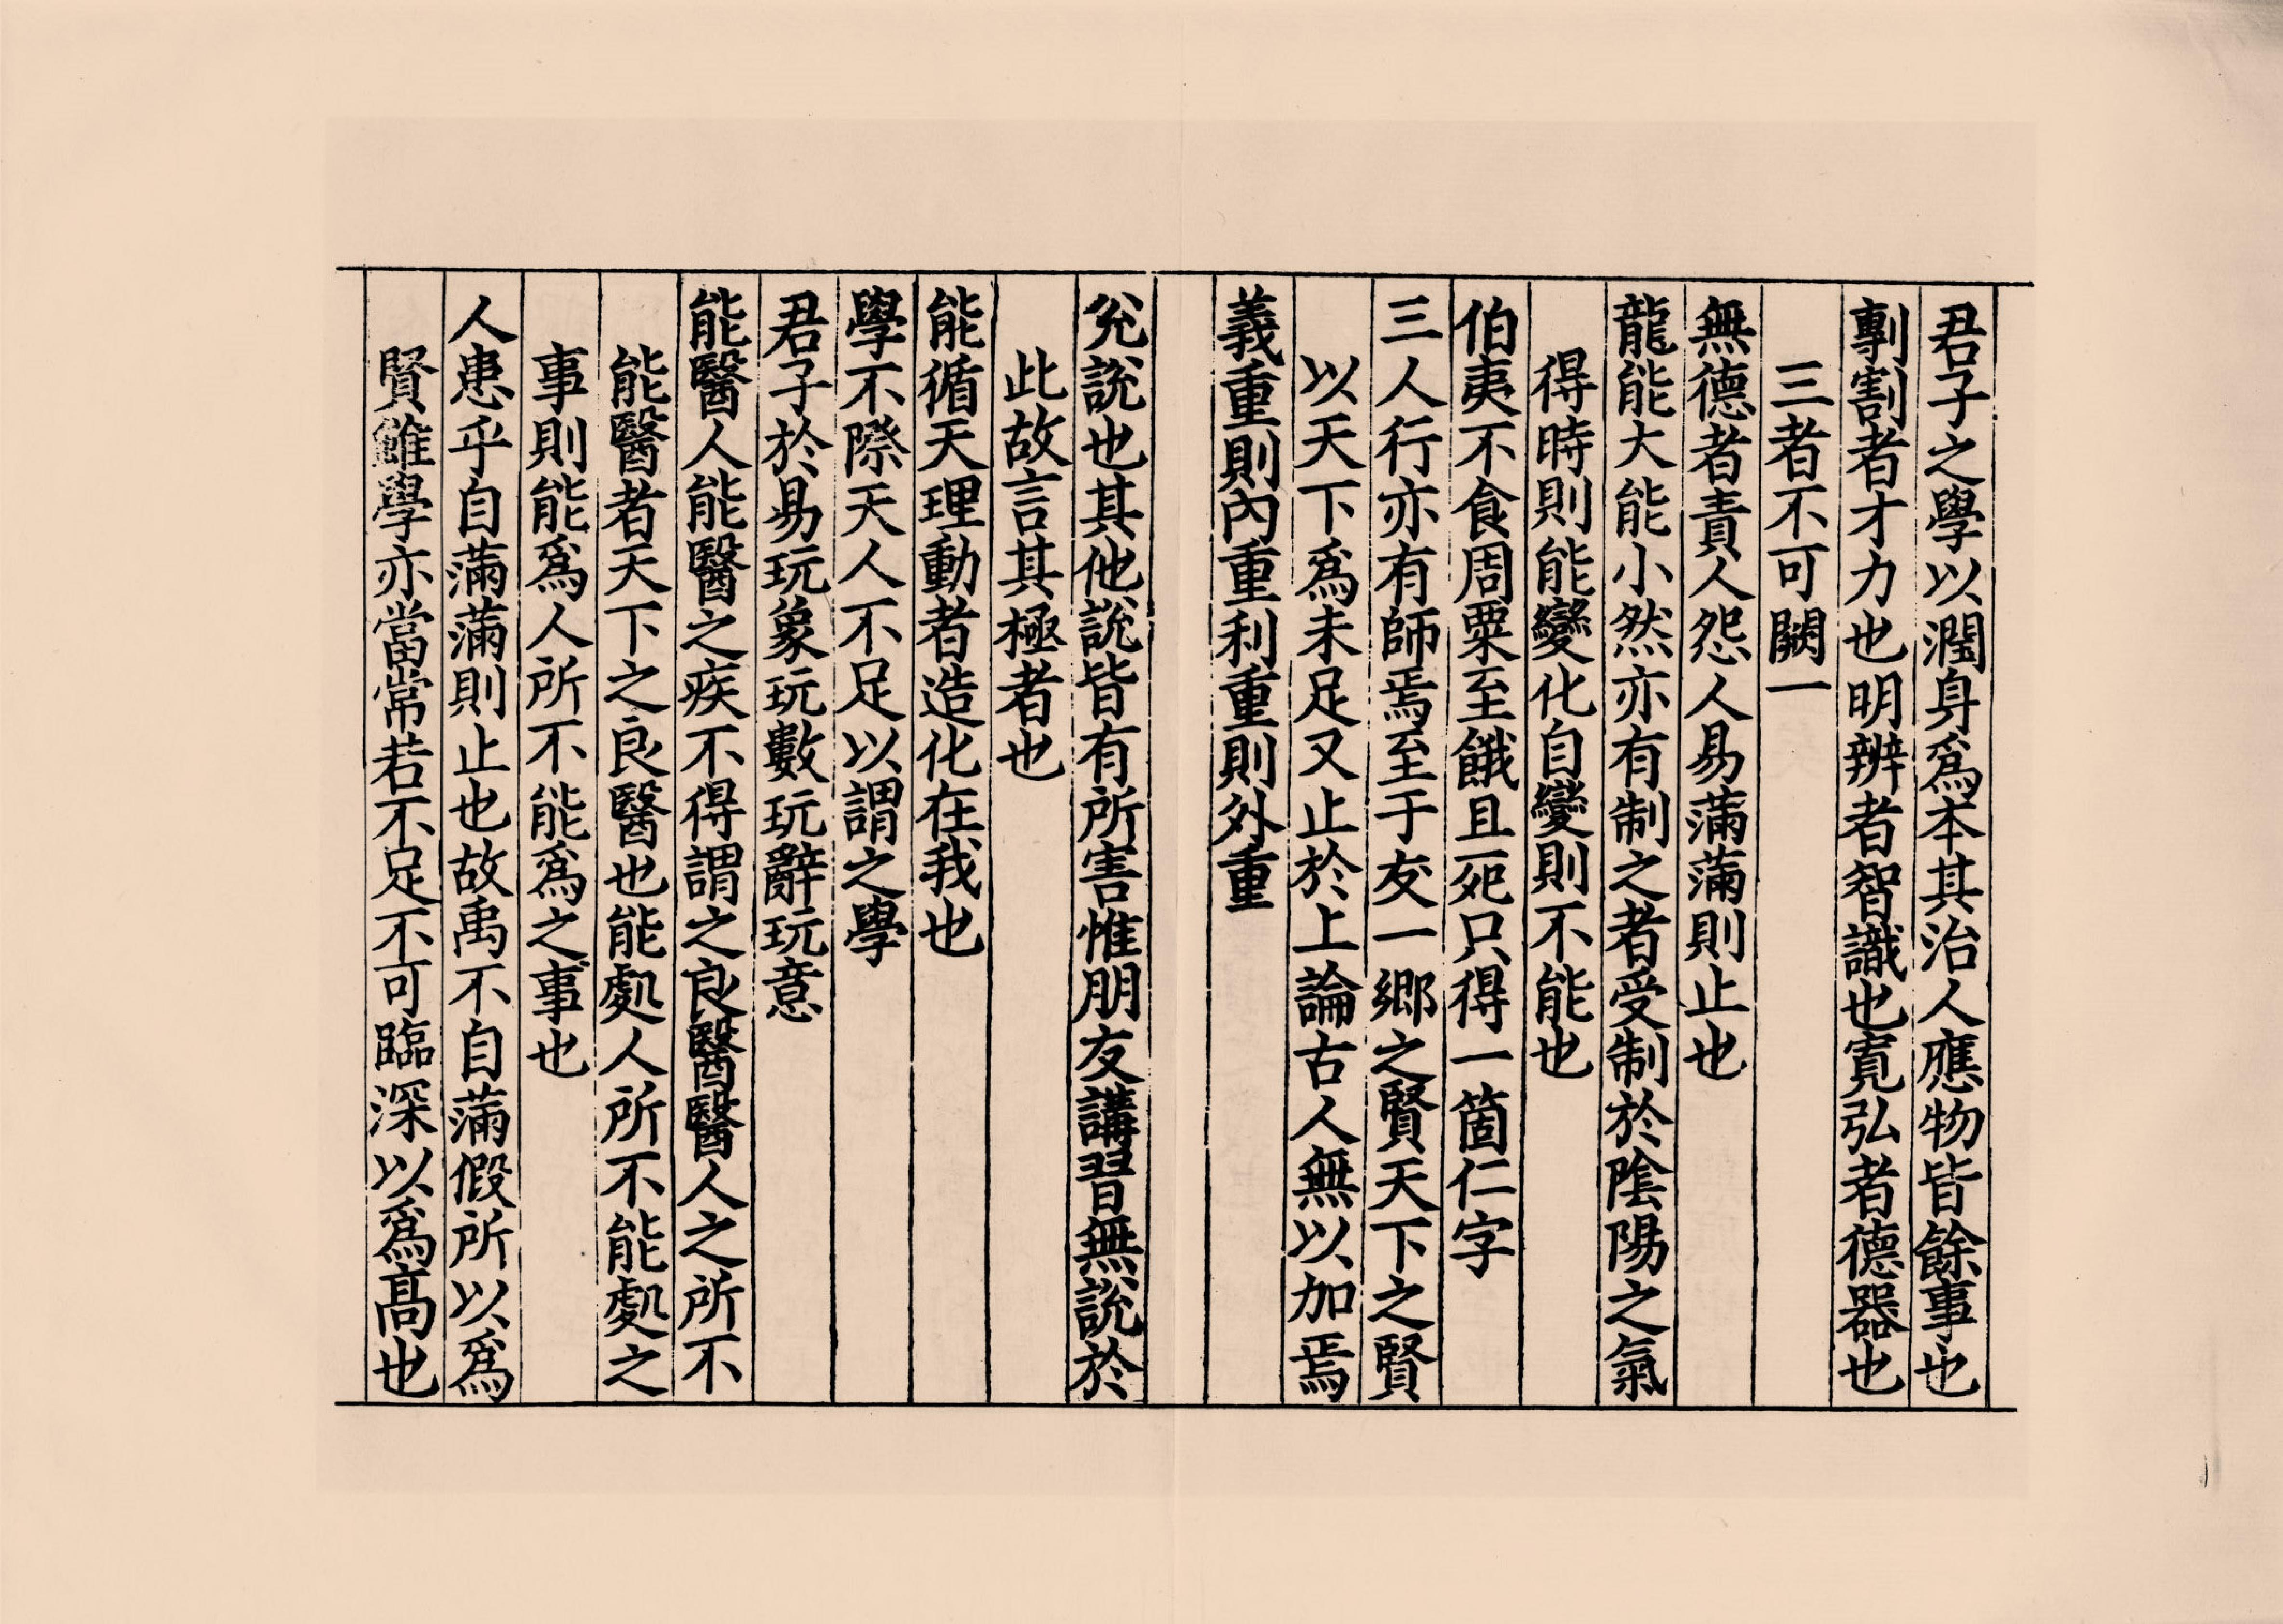 君子之學以潤身爲本其治人應物皆餘事也
剸割者才力也明辨者智識也寛弘者德器也
三者不可闕一
無德者責人怨人易滿滿則止也
龍能大能小然亦有制之者受制於陰陽之氣
得時則能變化自變則不能也
伯夷不食周粟至餓且死只得一箇仁字
三人行亦有師焉至于友一鄉之賢天下之賢
以天下爲未足又止於上論古人無以加焉
義重則內重利重則外重
兊說也其他說皆有所害惟朋友講習無說於
此故言其極者也
能循天理動者造化在我也
學不際天人不足以謂之學
君子於易玩象玩數玩辭玩意
能醫人能醫之疾不得謂之良醫醫人之所不
能醫者天下之良醫也能處人所不能處之
事則能爲人所不能爲之事也
人患乎自滿滿則止也故禹不自滿假所以爲
賢雖學亦當常若不足不可臨深以爲高也